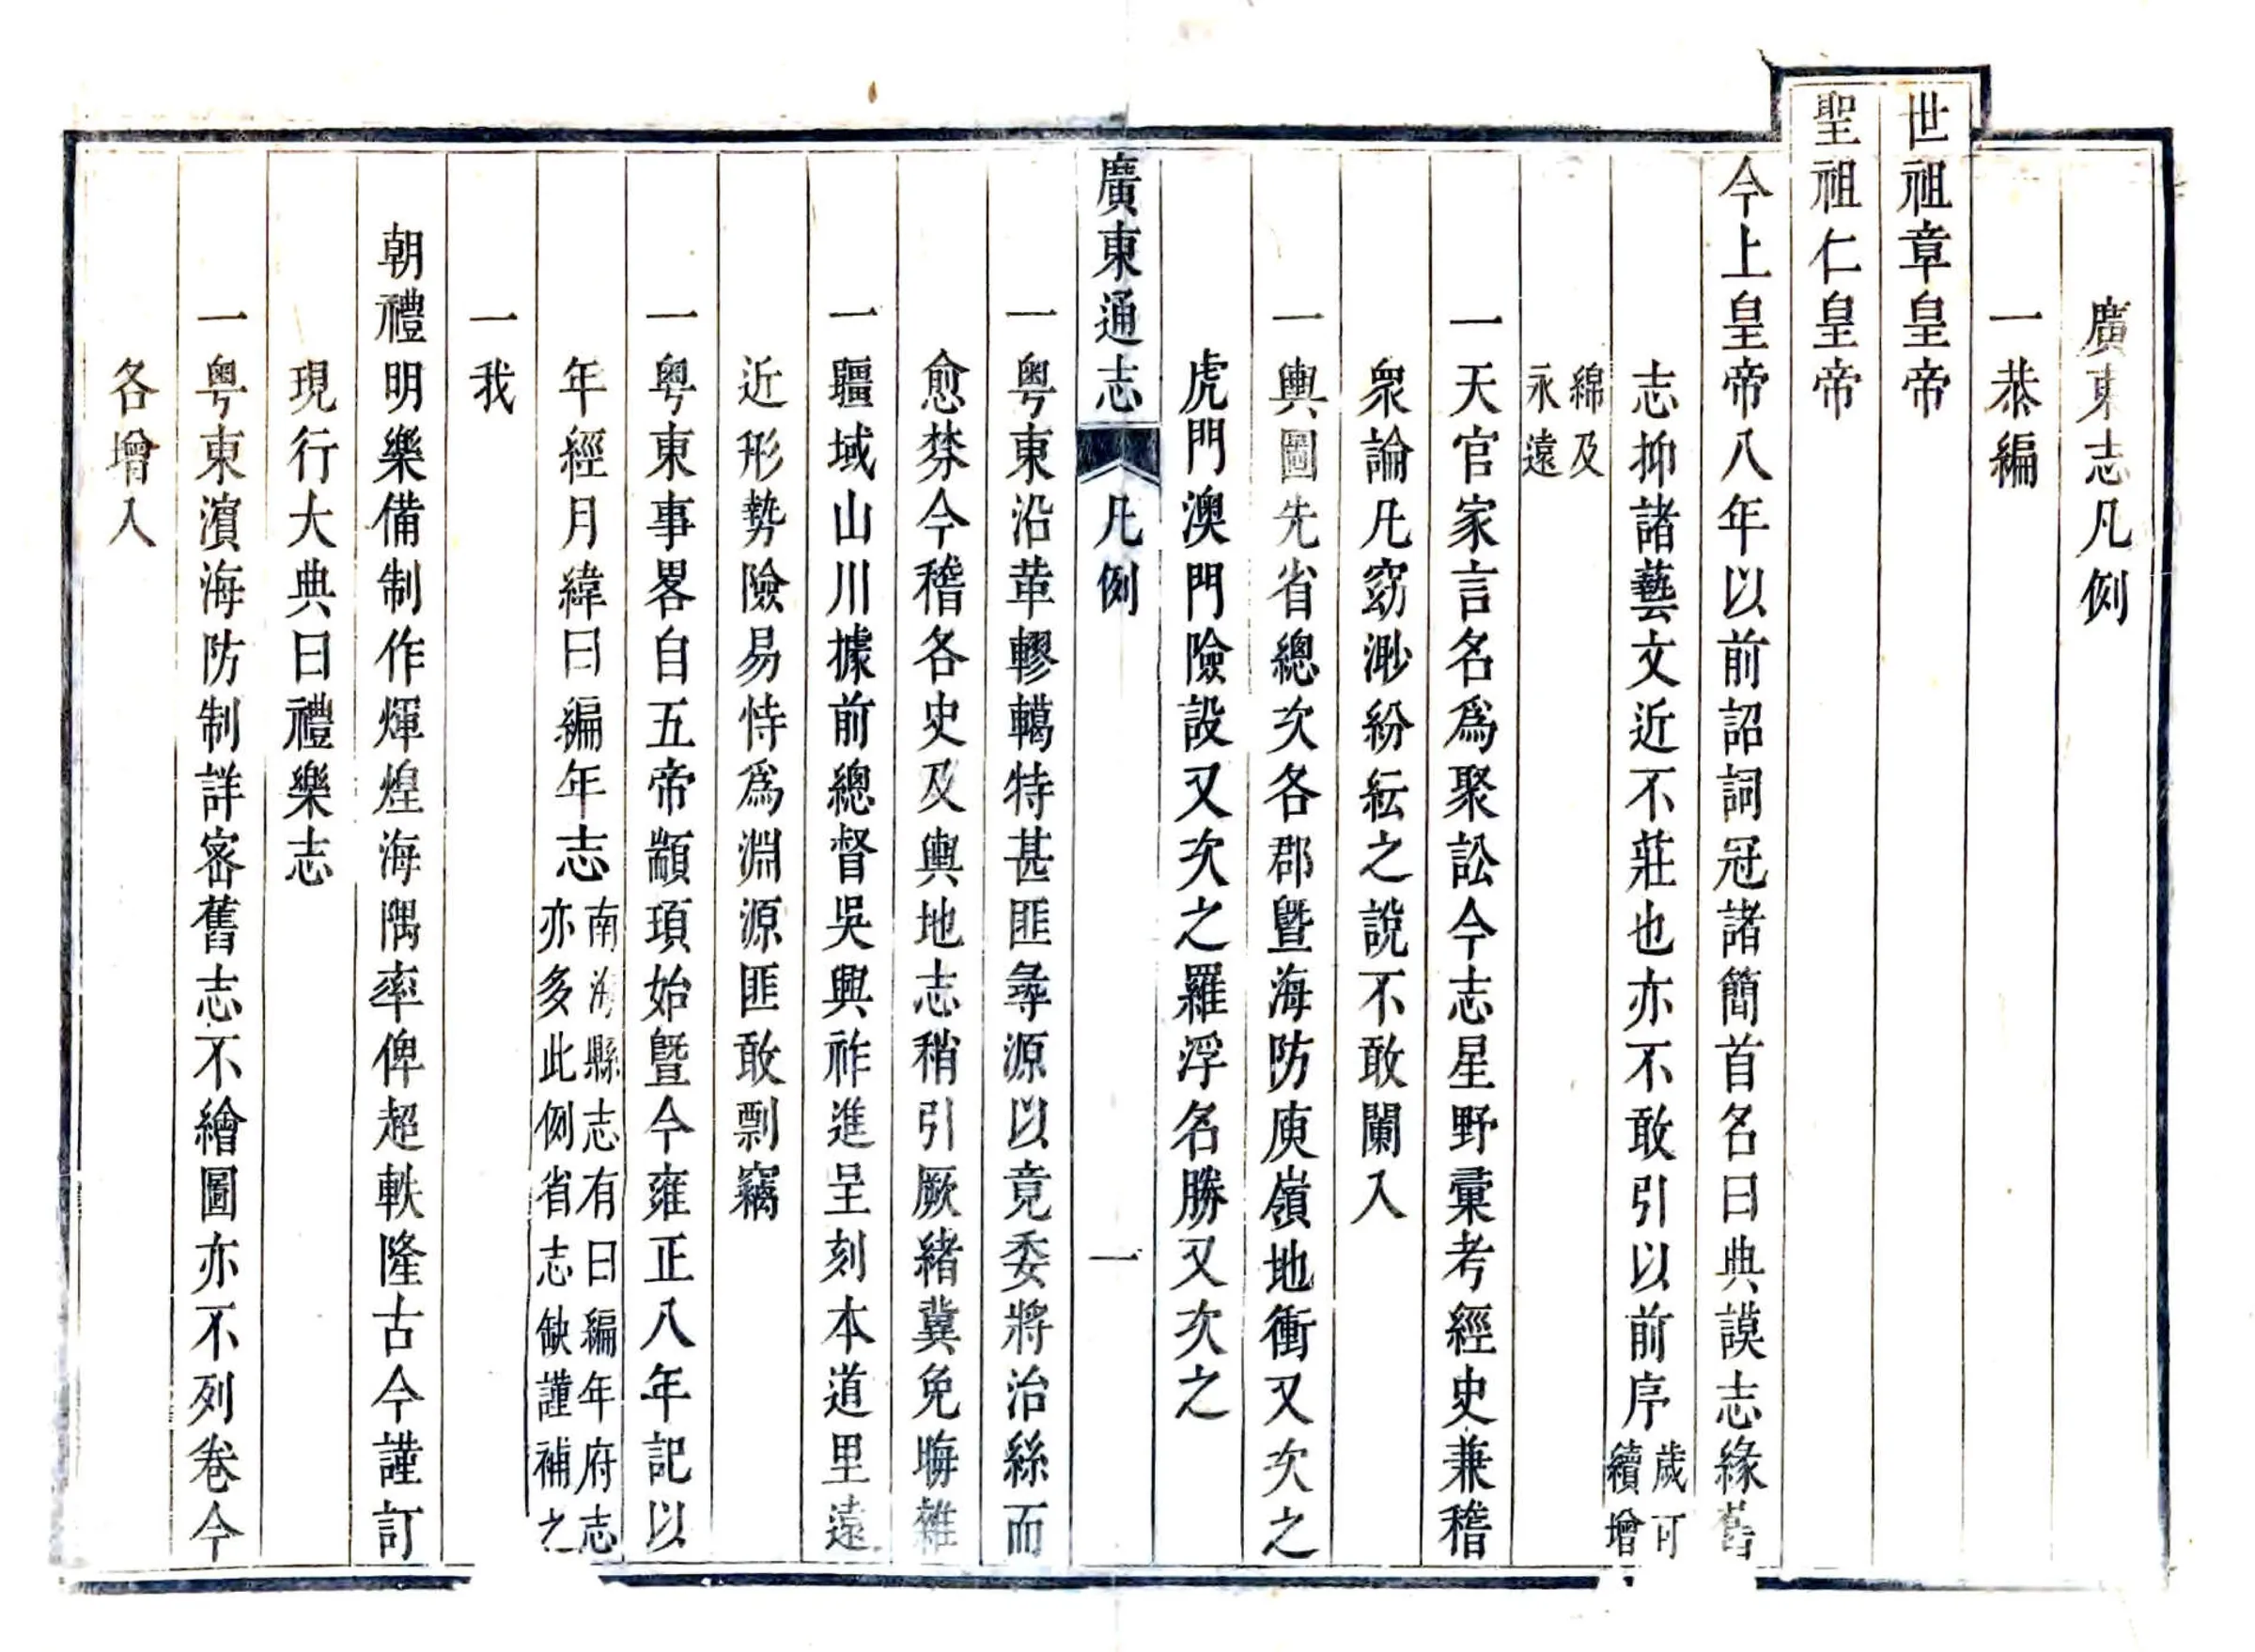 廣東志凡例
一恭編
世祖章皇帝
聖祖仁皇帝
今上皇帝八年以前詔詞冠諸簡首名曰典謨志緣舊
志抑諸藝文近不莊也亦不敢引以前序歲可續增
綿及永遠
一天官家言名爲聚訟今志星野彚考經史兼稽
衆論凡窈渺紛紜之說不敢闌入
一輿圖先省總次各郡曁海防庾嶺地衝又次之
虎門澳門險設又次之羅浮名勝又次之
廣東通志 凡例 一
一粤東沿革轇轕特甚匪尋源以竟委將治絲而
愈棼今稽各史及輿地志稍引厥緒冀免晦雜
一疆域山川據前總督吳興祚進呈刻本道里遠
近形勢險易恃爲淵源匪敢剽竊
一粤東事畧自五帝顓頊始曁今雍正八年記以
年經月緯曰編年志南海縣志有曰編年府志亦多此例省志缺謹補之
一我
朝禮明樂備制作煇煌海隅率俾超軼隆古今謹訂
現行大典曰禮樂志
一粤東濵海防制詳宻舊志不繪圖亦不列卷今
各增入